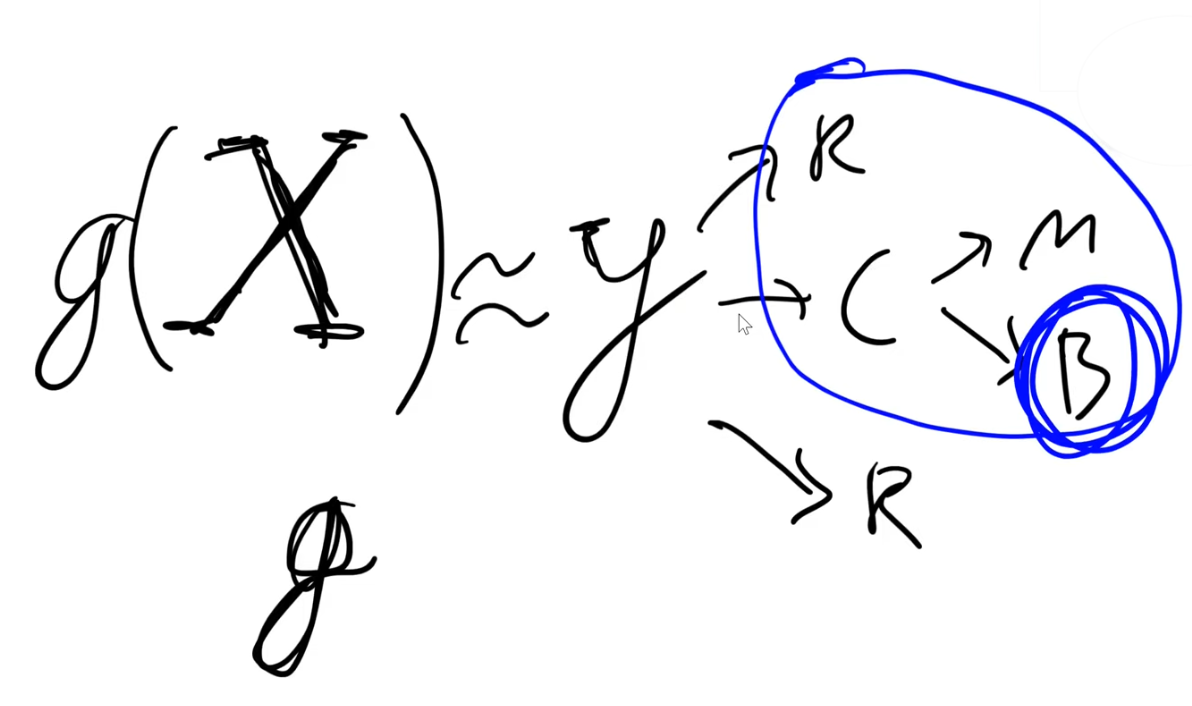 g(X) ≈ y
R
C
M
B
R
g